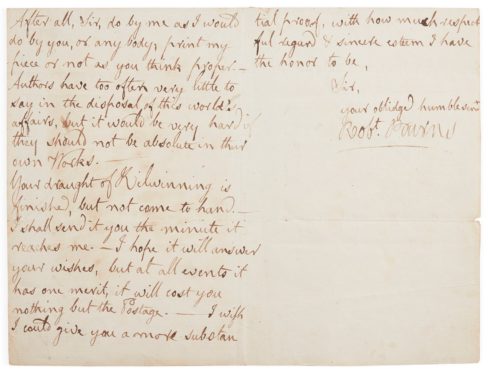 After all, Sir, do by me as I would
do by you, or any body; print my
piece or not as you think proper.—
Authors have too often very little to
say in the disposal of this world's
affairs, but it would be very hard if
they should not be absolute in their
own Works.—
Your draught of Kilwinning is
finished, but not come to hand.—
I shall send it you the minute it
reaches me.— I hope it will answer
your wishes, but at all events it
has one merit, it will cost you
nothing but the Postage.— I wish
I could give you a more substan
tial proof, with how much respect
ful regard & sincere esteem I have
the honor to be,
Sir,
your obliged humble servt
Robt. Burns